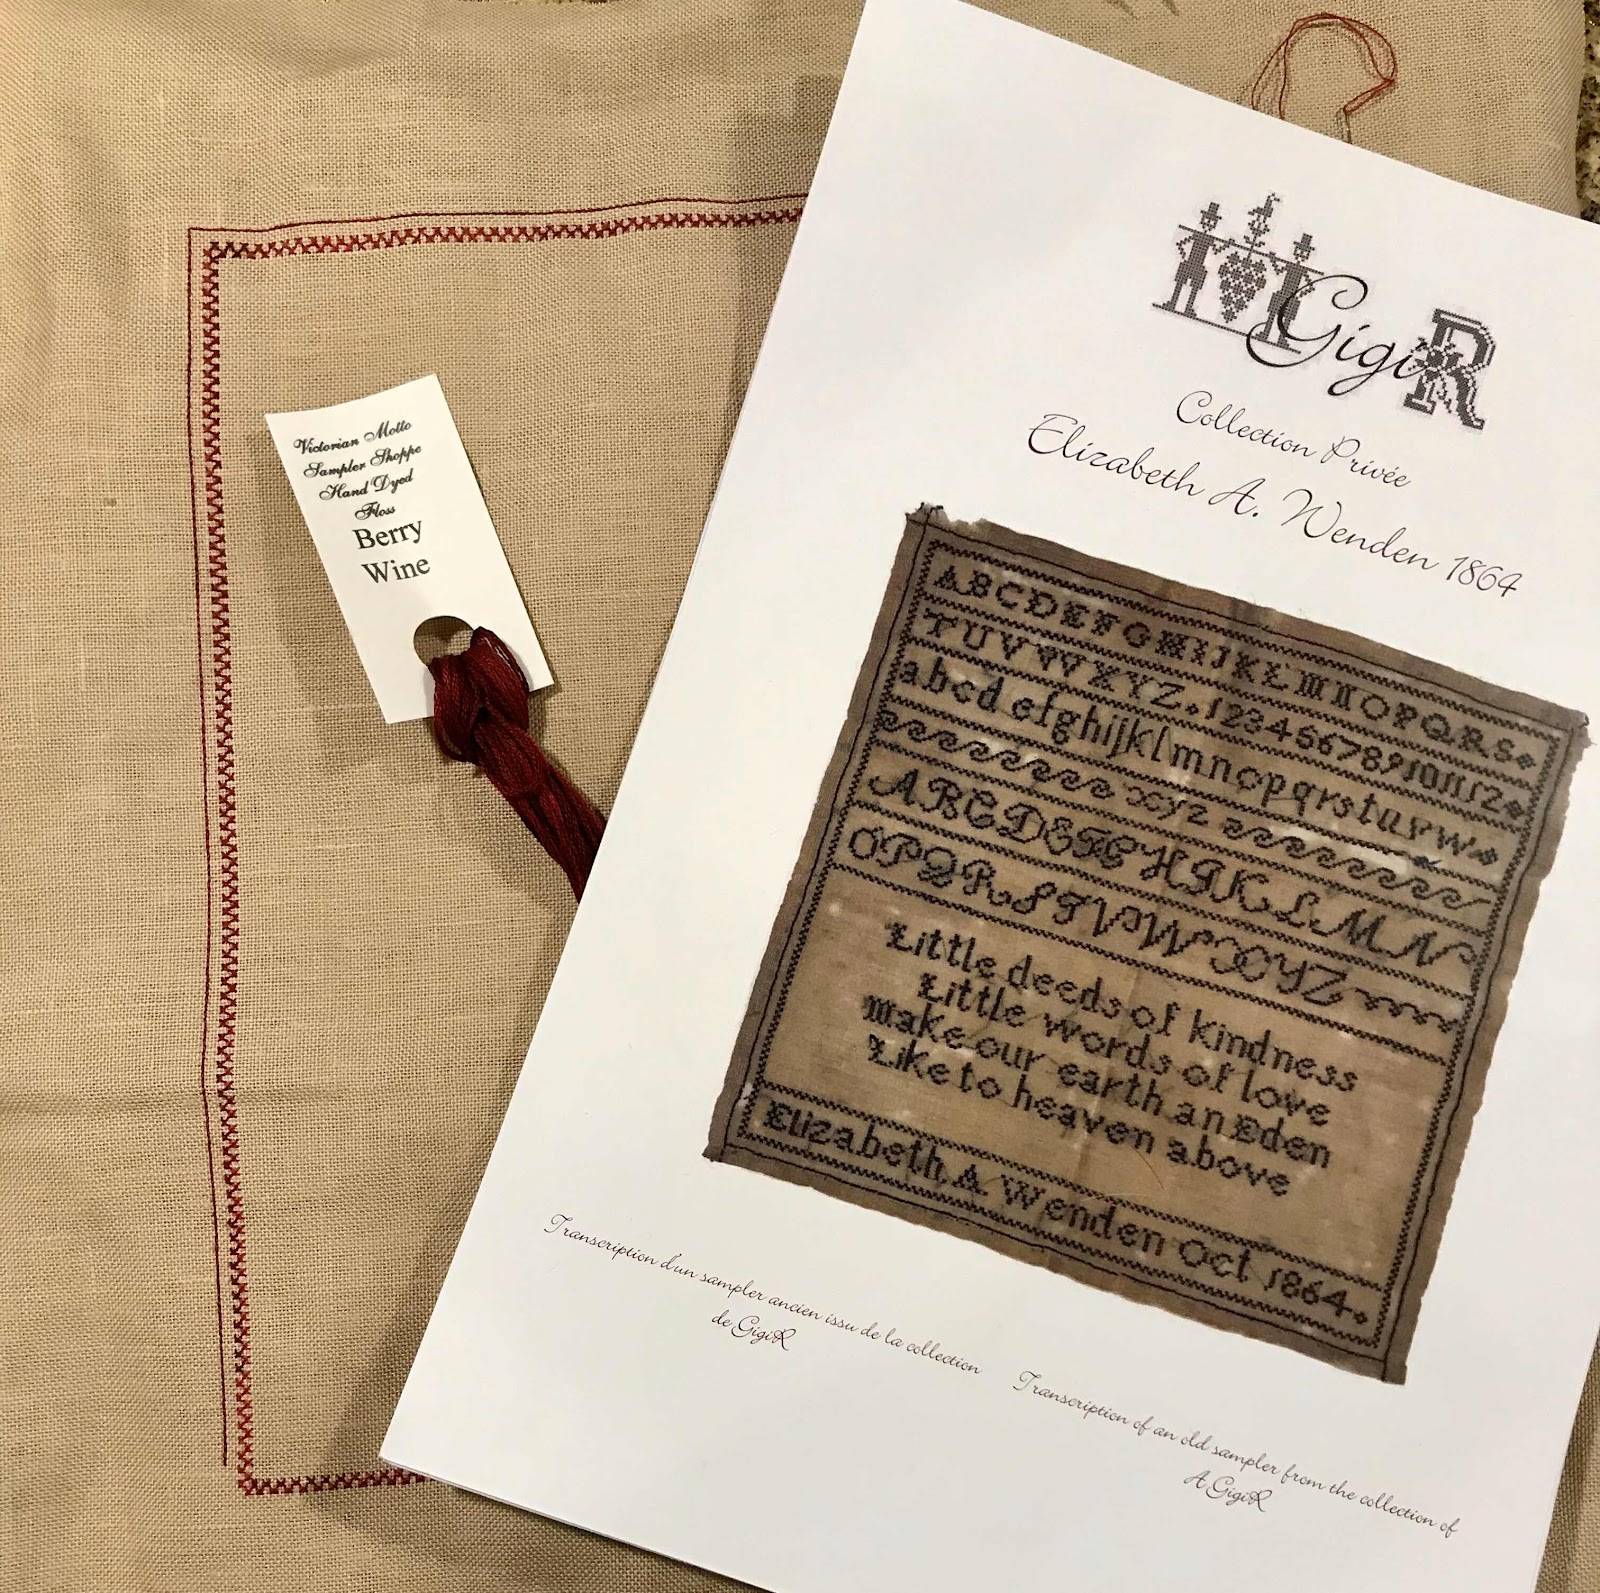 Victorian Motto
Sampler Shoppe
Hand Dyed
Floss
Berry
Wine
GigiR
Collection Privée
Elizabeth A. Wenden 1864
ABCDEFGHIJKLMNOPQRS
TUVWXYZ. 123456789101112
abcdefghijklmnopqrstuvw
xyz
ABCDEFGHIJKLMN
OPQRSTVWXYZ
Little deeds of kindness
Little words of love
make our earth an Eden
Like to heaven above
Elizabeth A Wenden Oct 1864.
Transcription d'un sampler ancien issu de la collection
de GigiR
Transcription of an old sampler from the collection of
A GigiR